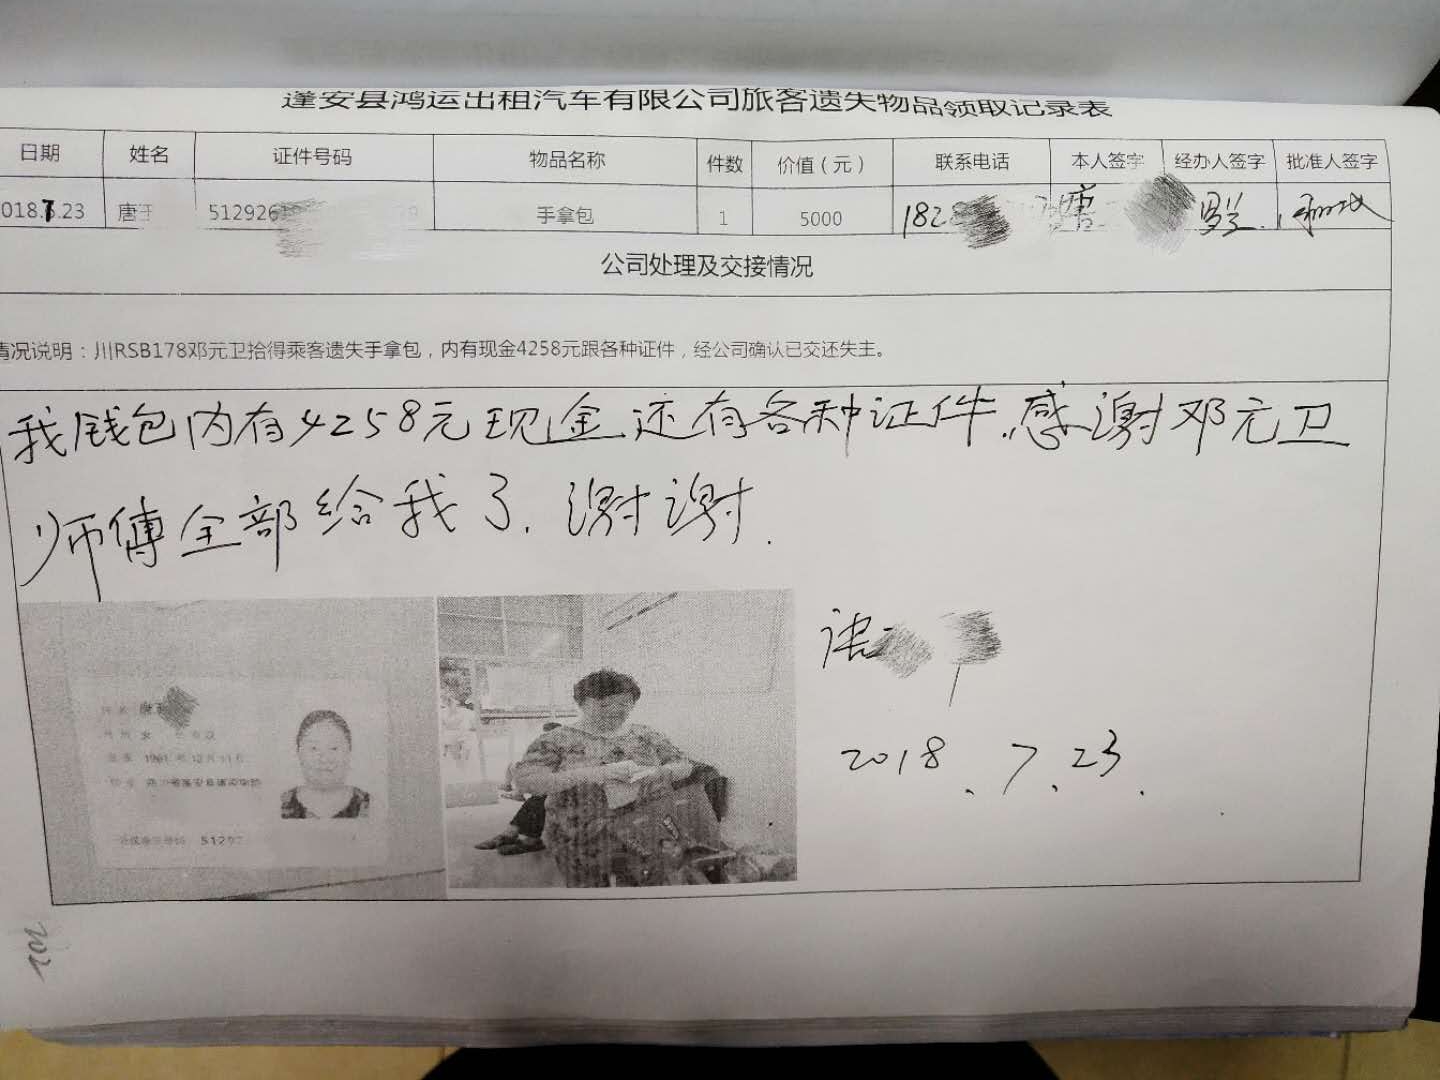 蓬安县鸿运出租汽车有限公司旅客遗失物品领取记录表
日期 姓名 证件号码 物品名称 件数 价值（元） 联系电话 本人签字 经办人签字 批准人签字
018.7.23 唐 512926 手拿包 1 5000 182 唐
公司处理及交接情况
情况说明：川RSB178邓元卫拾得乘客遗失手拿包，内有现金4258元跟各种证件，经公司确认已交还失主。
我钱包内有4258元现金还有各种证件.感谢邓元卫
师傅全部给我了.谢谢.
唐
2018.7.23.
51292
102